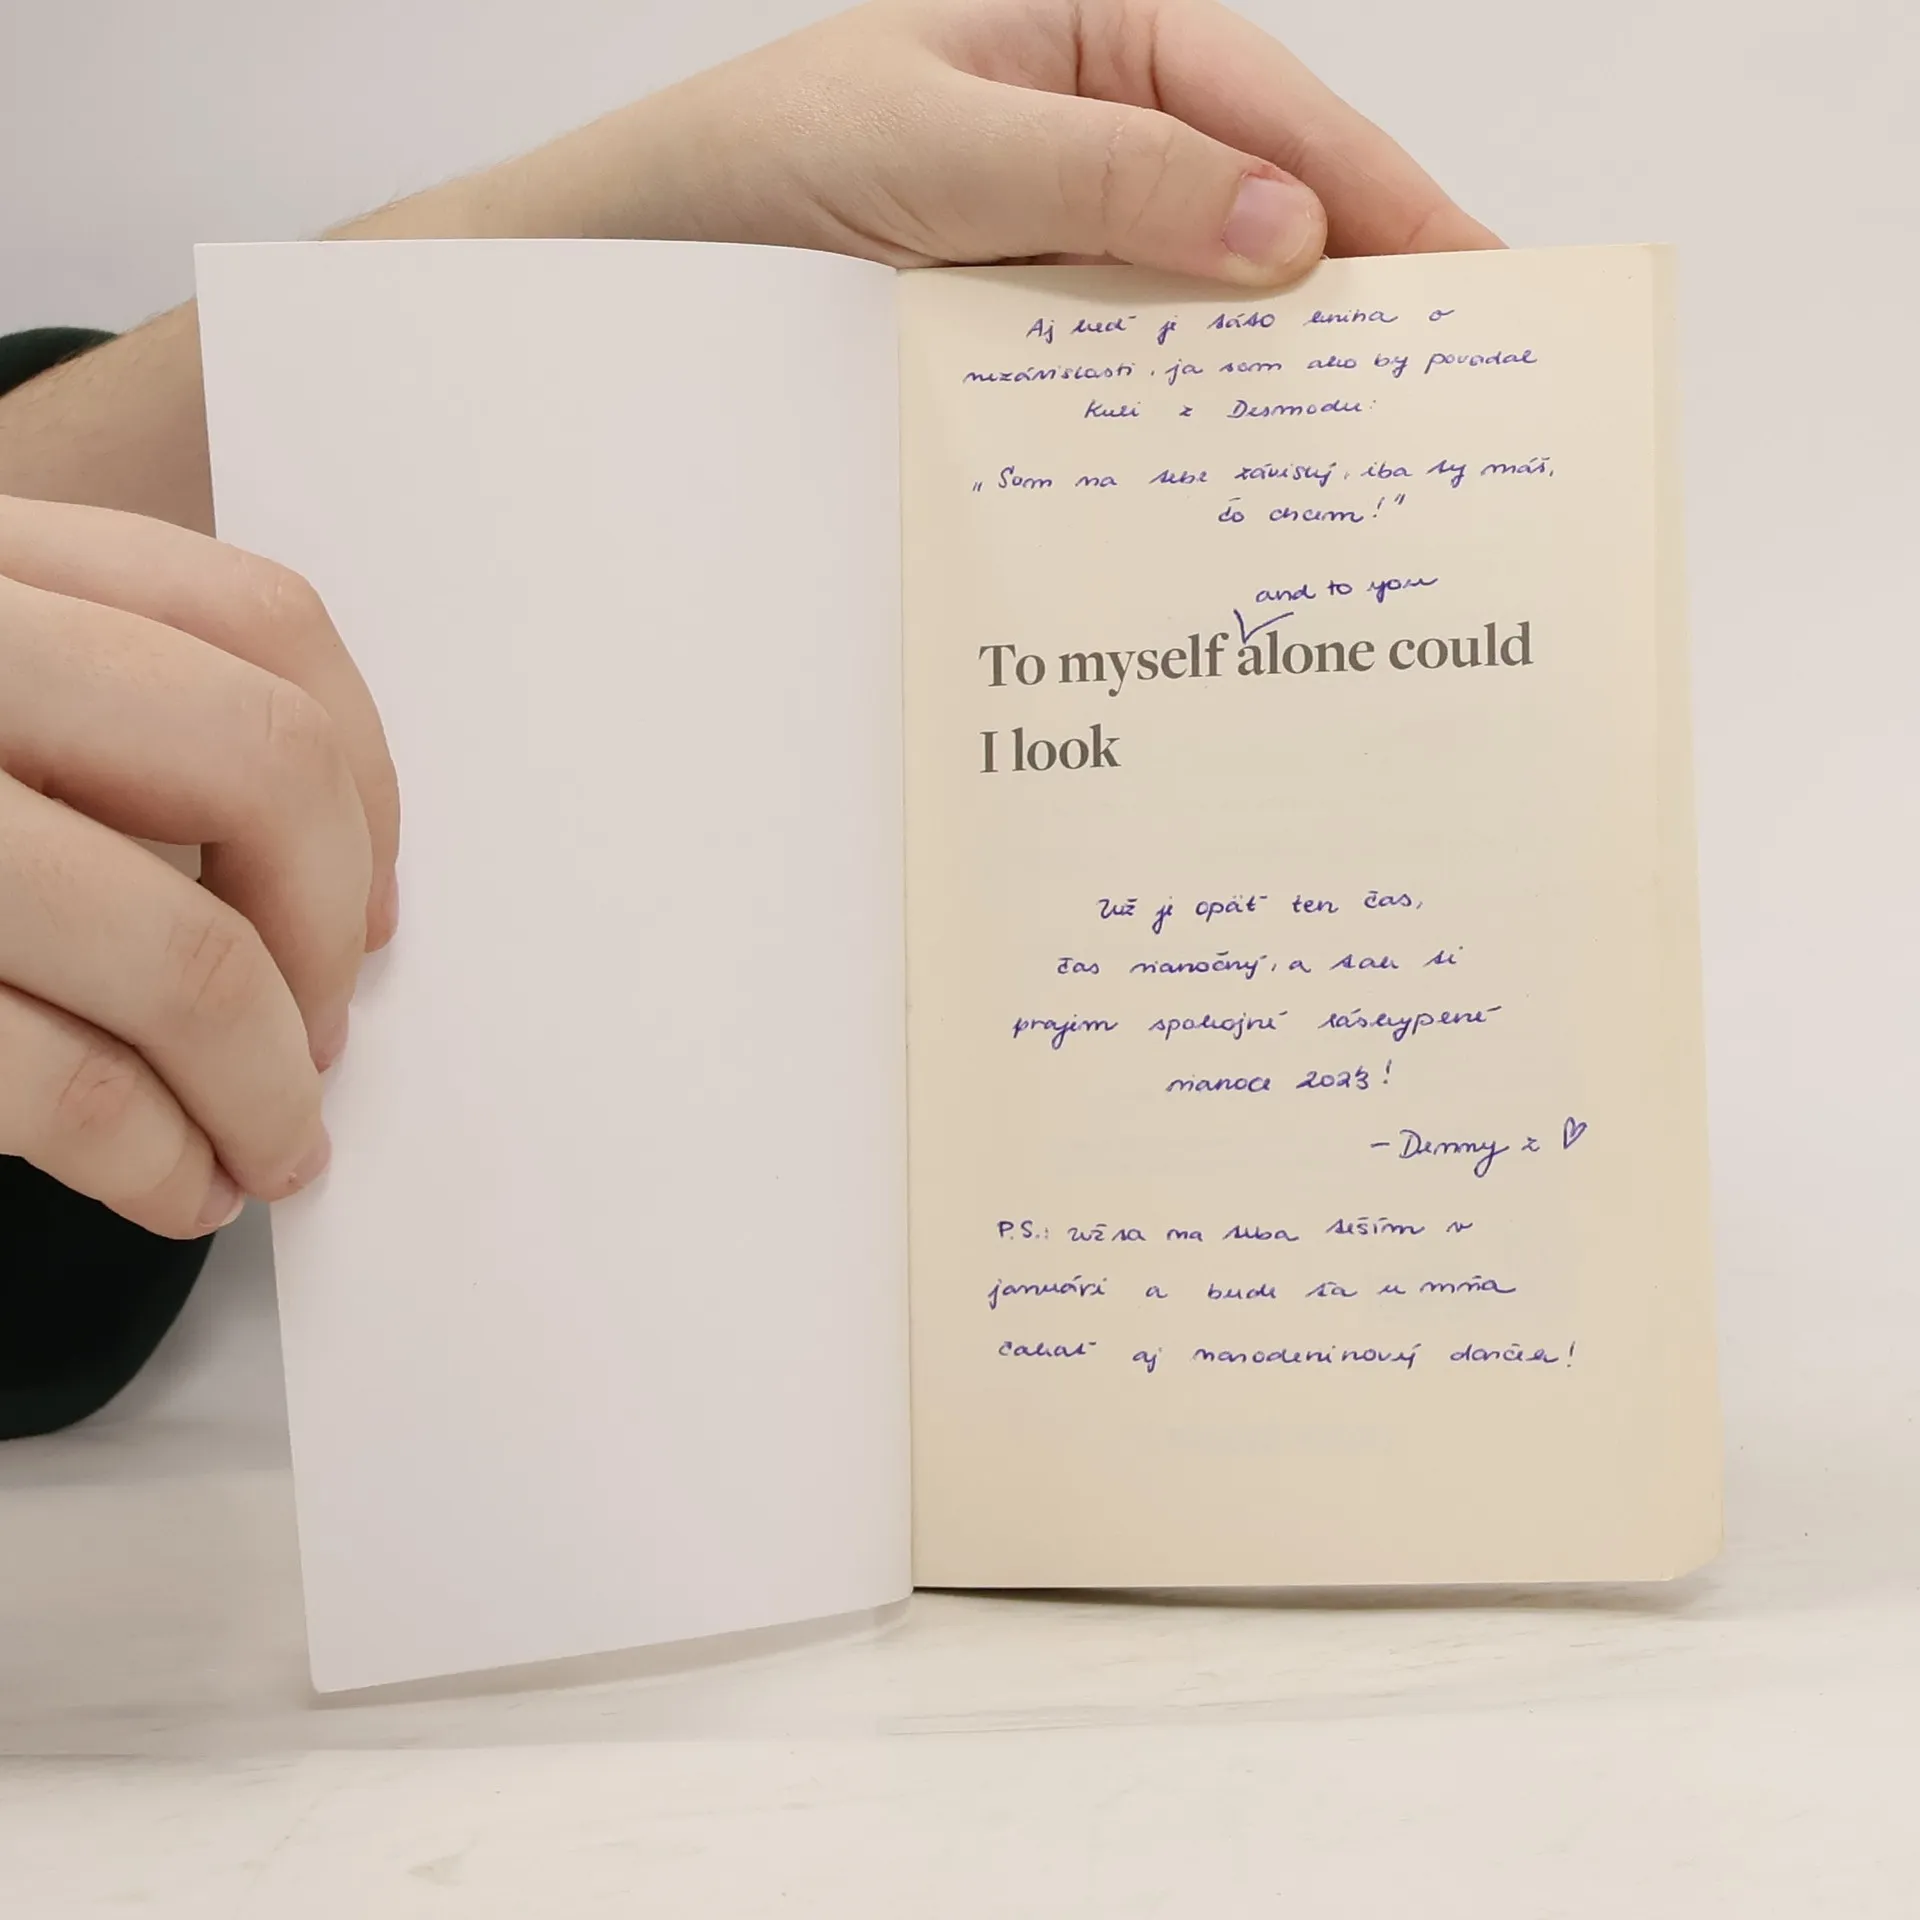 Aj keď je táto kniha o
nezávislosti, ja som ako by povedal
Kuli z Desmodu:
„Som na tebe závislý, iba ty máš,
čo chcem!"
and to you
To myself alone could
I look
Už je opäť ten čas,
čas vianočný, a tak ti
prajem spokojné láskyplné
vianoce 2023!
- Denny z ♡
P.S.: už sa na teba teším v
januári a bude ťa u mňa
čakať aj narodeninový darček!